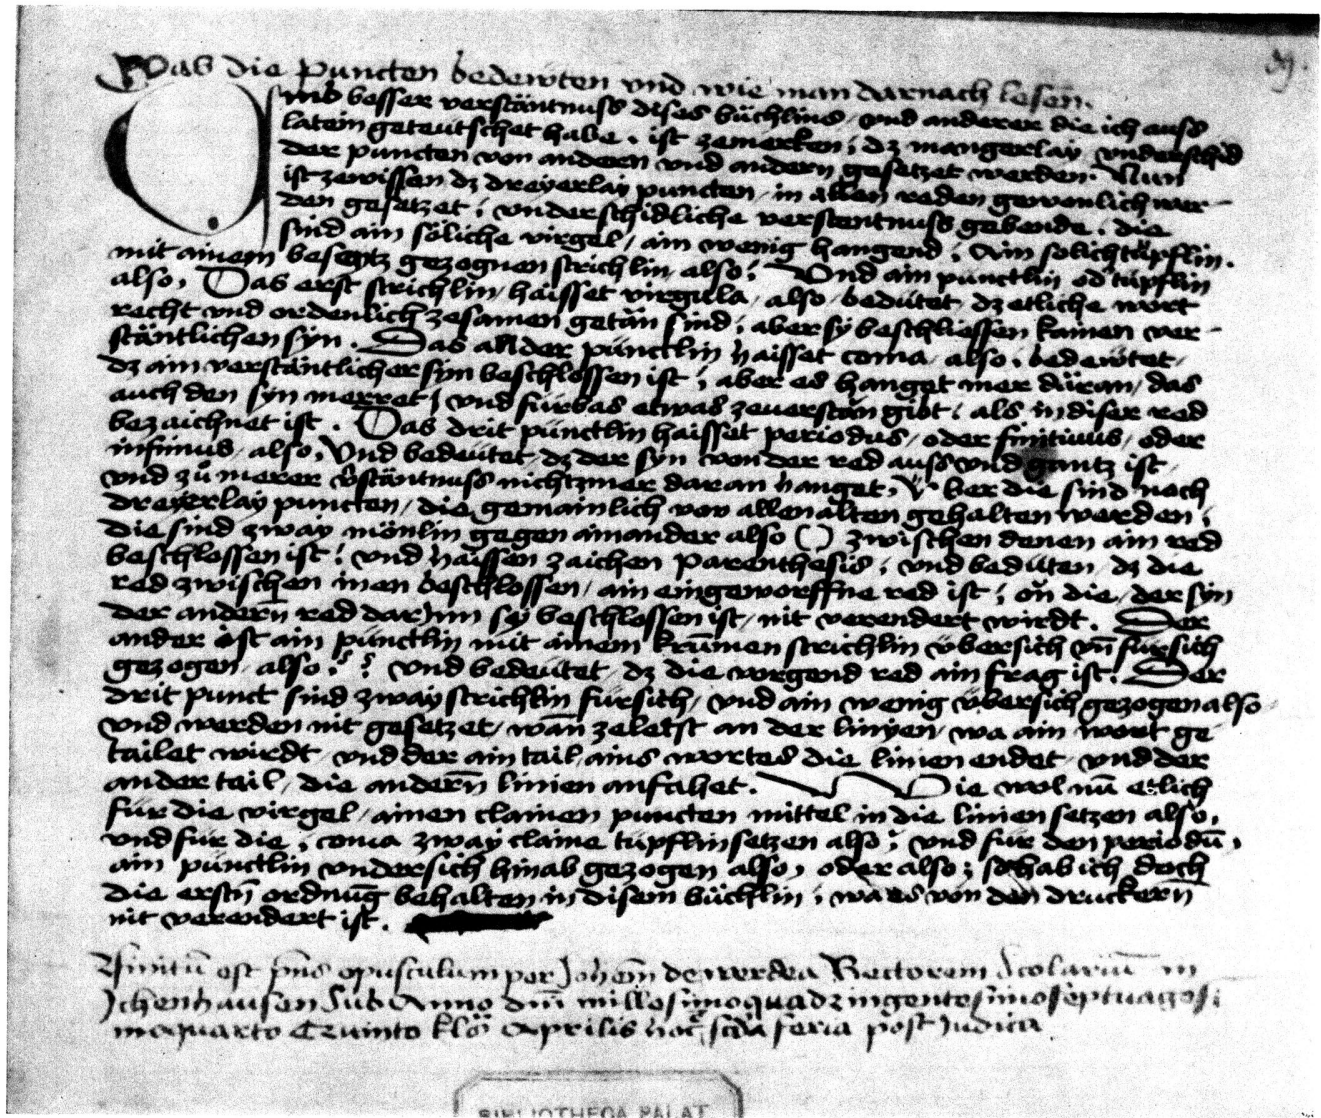 Was die puncten bedewten vnd wie man darnach lesen.
Umb besser verstäntnuss dises büchlins / vnd anderer die ich auss
latein geteutschet habe. ist zemerken; dz mangerlay vnderschid
der puncten von andern vnd andern gesetzet werden. Nun
ist zewissen dz dreyerlay puncten / in allen reden gewonlich wer-
den gesetzet; vnderschidliche verstentnuss gebende. die
sind ain söliche virgel / ain wenig hangend; Ain solich tüpflin.
mit ainem besentz gezognen strichlin also; Vnd ain punctlin od tüpflin
also. Das erst strichlin / haisset virgula / also / bedütet / dz etliche wort
recht vnd ordenlich zesamen getän sind; aber sy beschliessen kainen ver-
stäntlichen syn. Das ander pünctlin haisset coma / also; bedewtet /
dz ain verstäntlicher syn beschlossen ist; aber es hanget mer däran / das
auch den syn merret / vnd fürbas etwas zeuerstän gibt; als in diser red
bezaichnet ist. Das drit pünctlin haisset periodus / oder finitiuus / oder
infimus / also. Vnd bedeütet / dz der syn von der red auss vnd gantz ist /
vnd zů merer v̄stäntnuss nichtzmer daran hanget. Vber die sind noch
dreyerlay puncten / die gemainlich von allen alten gehalten werden;
die sind zway mönlin gegen ainander also () zwischen denen ain red
beschlossen ist; vnd haissen zaichen parenthesis; vnd bedüten / dz die
red zwischen inen beschlossen / ain eingeworffne red ist; on̄ die / der syn
der andern̄ red darinn sy beschlossen ist / nit verendert wirdt. Der
ander ist ain pünctlin mit ainem krūmen strichlin übersich vn̄ fürsich
gezogen / also ? ? vnd bedeütet / dz die vorgend red ain frag ist. Der
drit punct sind zway strichlin fürsich / vnd ain wenig übersich gezogen also
vnd werden nit gesetzet / wan̄ zeletst an der linyen / wa ain wort ge
tailet wirdt / vnd der ain tail / ains wortes die linien endet / vnd der
ander tail / die andern̄ linien anfahet. Wie wol nū etlich
für die virgel / ainen clainen puncten mittel in die linien setzen also.
vnd für die; coma zway claine tüpflin setzen also: vnd für den periodū.
ain pünctlin vndersich hinab gezogen also, oder also; so hab ich doch
die erstn̄ ordnūg behalten in disem büchlin; wa es von den druckern̄
nit verendert ist.
Finitū est pn̄s opusculum per Johem̄ de werdea Rectorem scolariū in
Ichenhausen Sub Anno dn̄i millesimoquadringentesimoseptuagesi
moquarto Quinto klo᷒ Aprilis scd̄a feria post Judica
BIBLIOTHECA PALAT.